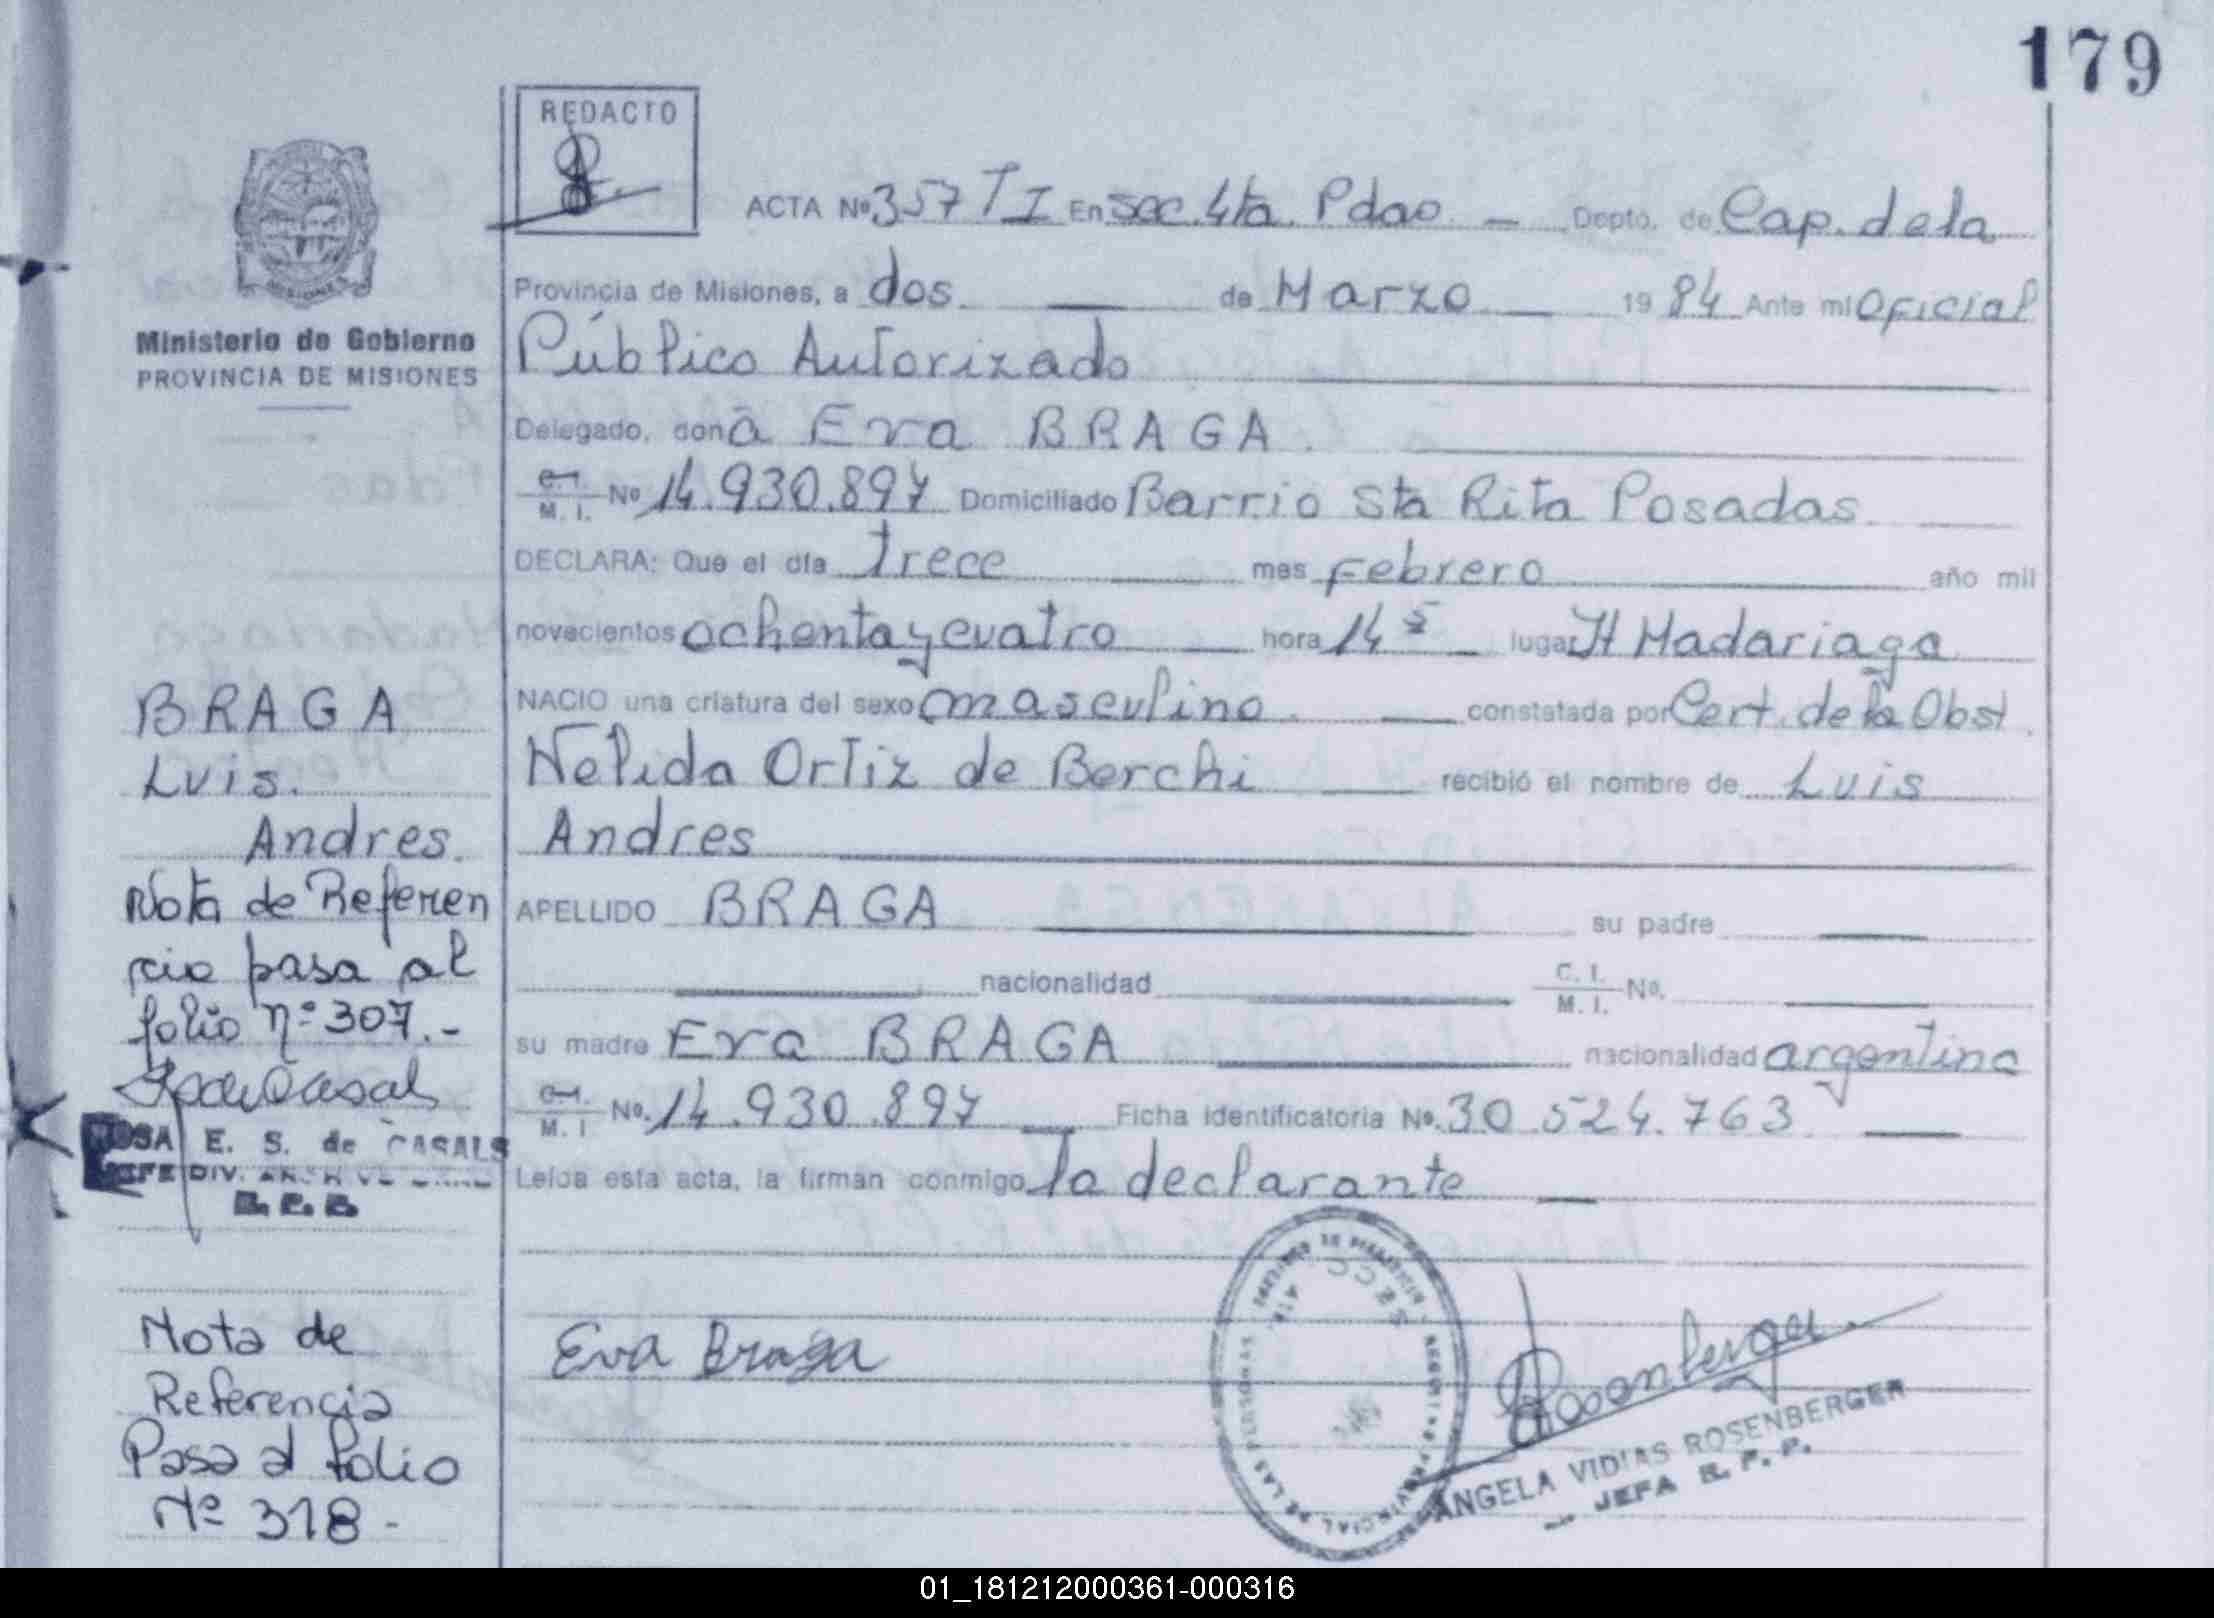 179
REDACTO
ACTA Nº 357 T I En sec. 4ta. Pdas. — Depto. de Cap. de la
Provincia de Misiones, a dos — de Marzo — 19 84 Ante mi Oficial
Ministerio de Gobierno
PROVINCIA DE MISIONES
Público Autorizado
Delegado, don a Eva BRAGA.
C. I. M. I. Nº 14.930.897 Domiciliado Barrio Sta Rita Posadas
DECLARA: Que el día trece — mes Febrero — año mil
novecientos ochenta y cuatro — hora 14 5 — lugar H Madariaga
NACIO una criatura del sexo masculino. — constatada por Cert. de la Obst.
Nelida Ortiz de Berchi — recibió el nombre de Luis
Andres
APELLIDO BRAGA — su padre —
— nacionalidad — C. I. M. I. Nº. —
su madre Eva BRAGA — nacionalidad argentina
C. I. M. I Nº. 14.930.897 — Ficha identificatoria Nº. 30.524.763 —
Leída esta acta, la firman conmigo la declarante —
BRAGA
Luis.
Andres.
Nota de Referen
cia pasa al
folio nº 307.-
ROSA E. S. de CASALS
JEFE DIV.
Nota de
Referencia
Pasa al folio
Nº 318-
Eva Braga
Rosenberger
ANGELA VIDIAS ROSENBERGER
JEFA R. P. P.
01_181212000361-000316